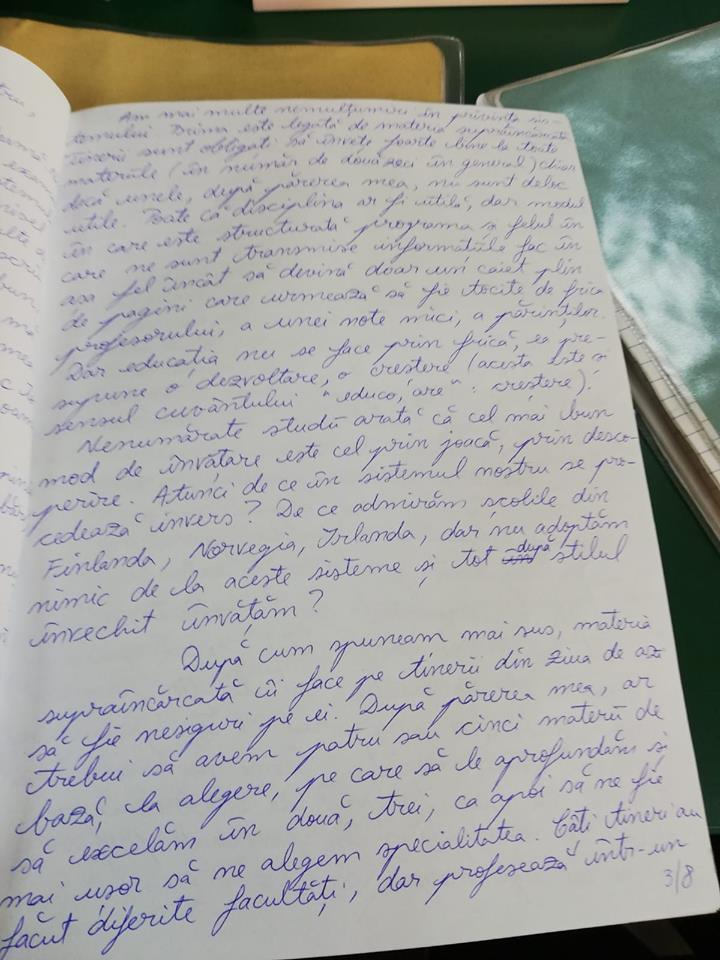 Am mai multe nemulțumiri în privința sis-
temului. Prima este legată de materia supraîncărcată
tinerii sunt obligați să învețe foarte bine la toate
materiile (în număr de douăzeci în general) chiar
dacă unele, după părerea mea, nu sunt deloc
utile. Poate că disciplina ar fi utilă, dar modul
în care este structurată programa și felul în
care ne sunt transmise informațiile fac în
așa fel încât să devină doar un caiet plin
de pagini care urmează să fie tocite de frica
profesorului, a unei note mici, a părinților.
Dar educația nu se face prin frică, ea pre-
supune o dezvoltare, o creștere (acesta este și
sensul cuvântului "educo, are": creștere).
Nenumărate studii arată că cel mai bun
mod de învățare este cel prin joacă, prin desco-
perire. Atunci de ce în sistemul nostru se pro-
cedează invers? De ce admirăm școlile din
Finlanda, Norvegia, Irlanda, dar nu adoptăm
nimic de la aceste sisteme și tot după stilul
învechit învățăm?
După cum spuneam mai sus, materia
supraîncărcată îi face pe tinerii din ziua de azi
să fie nesiguri pe ei. După părerea mea, ar
trebui să avem patru sau cinci materii de
bază, la alegere, pe care să le aprofundăm și
să excelăm în două, trei, ca apoi să ne fie
mai ușor să ne alegem specialitatea. Câți tineri au
făcut diferite facultăți, dar profesează într-un
3/8